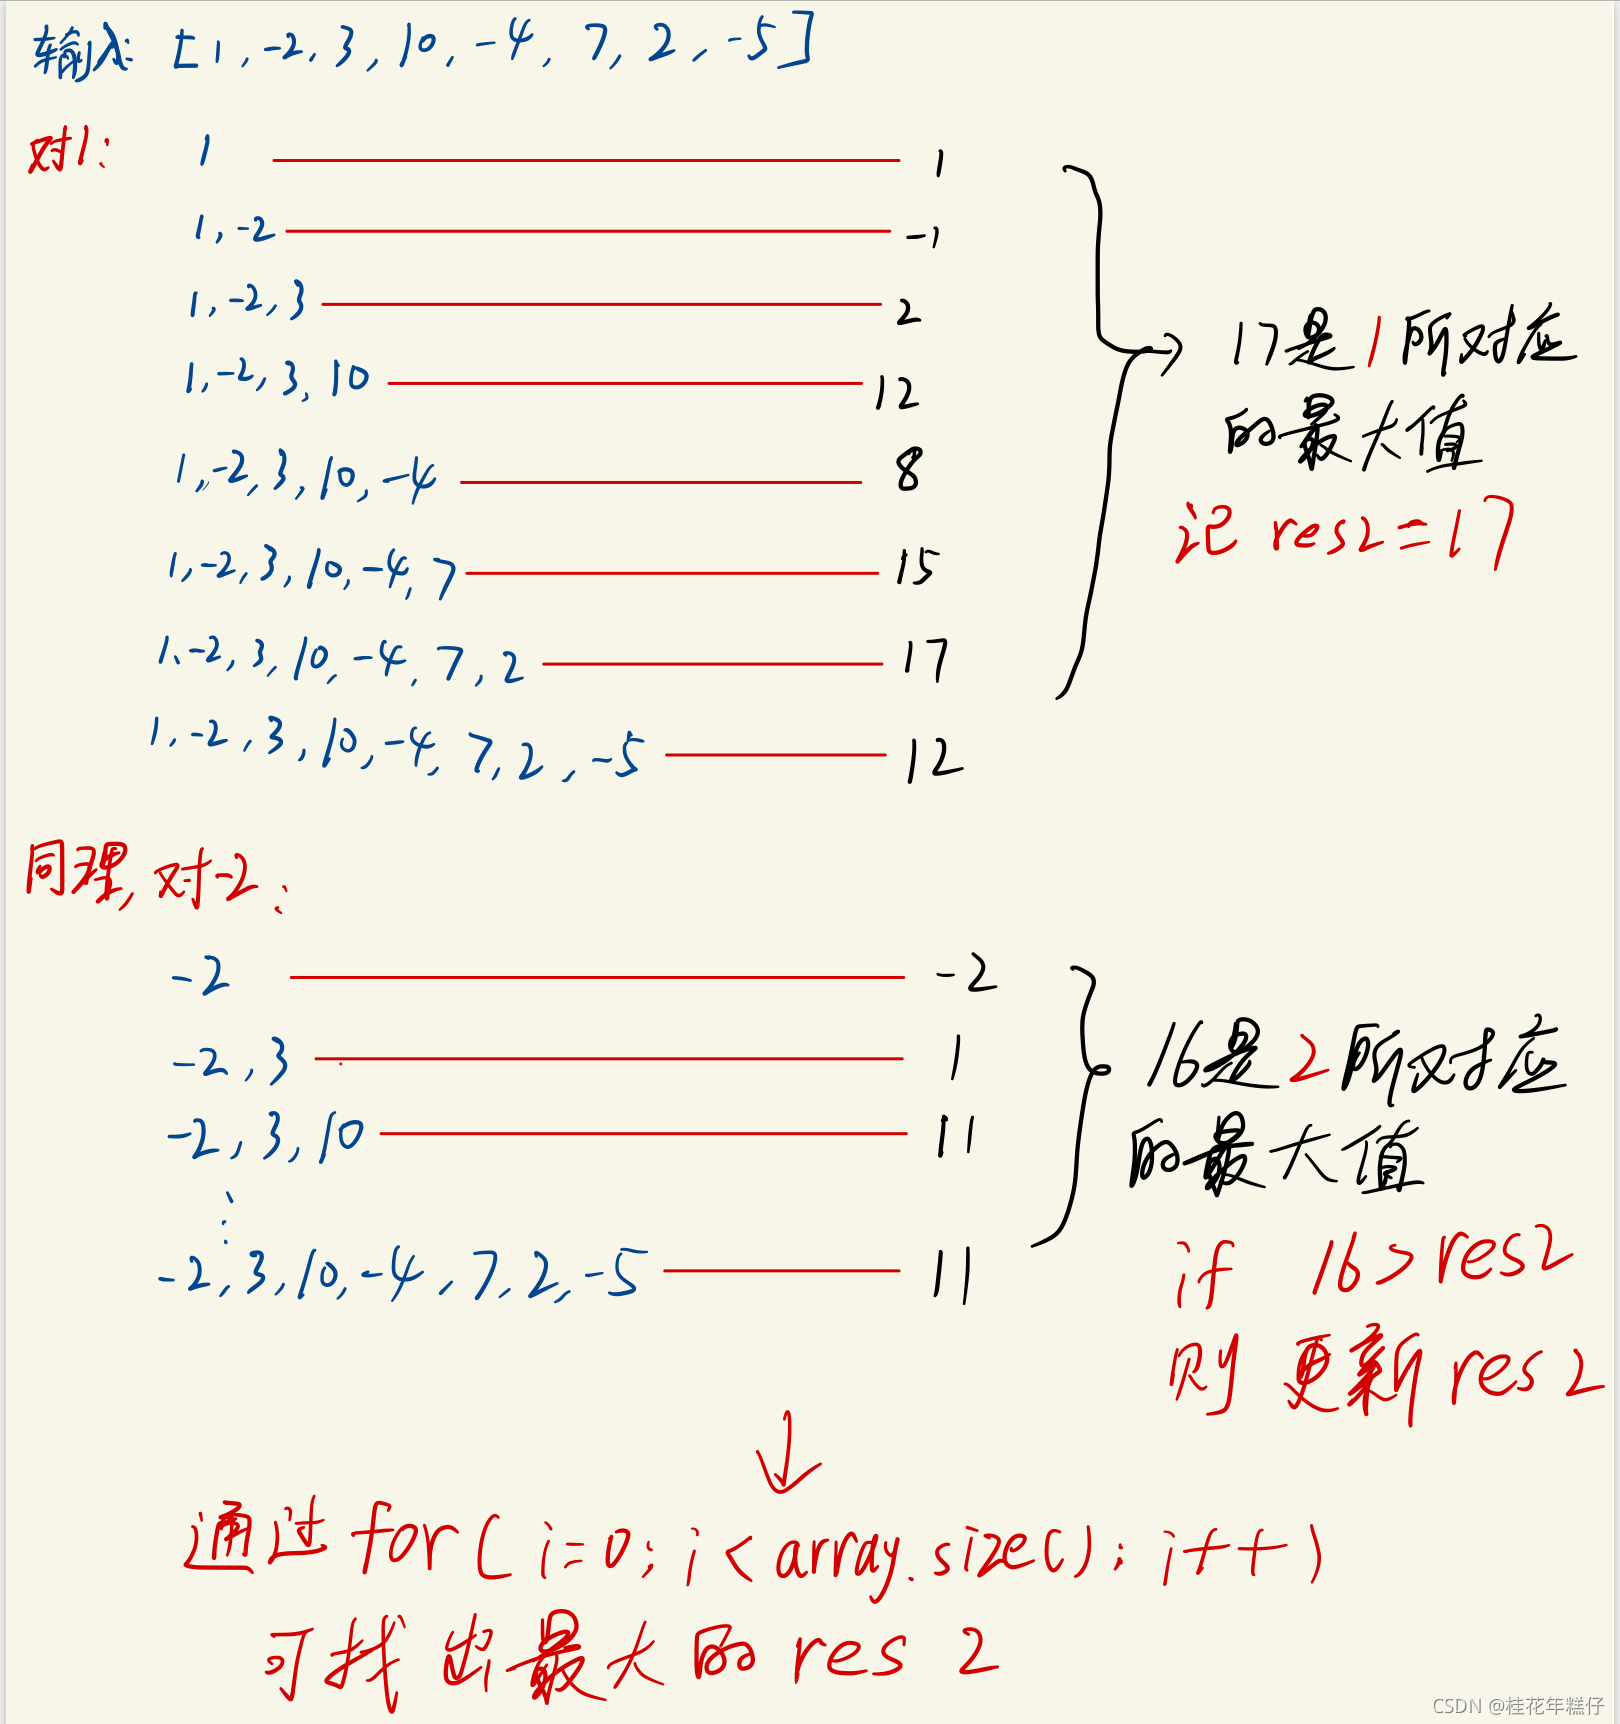 输入: [1, -2, 3, 10, -4, 7, 2, -5]
对1:
1 1
1, -2 -1
1, -2, 3 2
1, -2, 3, 10 12
1, -2, 3, 10, -4 8
1, -2, 3, 10, -4, 7 15
1, -2, 3, 10, -4, 7, 2 17
1, -2, 3, 10, -4, 7, 2, -5 12
17是1所对应
的最大值
记 res2=17
同理, 对-2:
-2 -2
-2, 3 1
-2, 3, 10 11
⋮
-2, 3, 10, -4, 7, 2, -5 11
16是2所对应
的最大值
if 16>res2
则 更新res2
↓
通过for(i=0; i<array.size(); i++)
可找出最大的res2
CSDN @桂花年糕仔